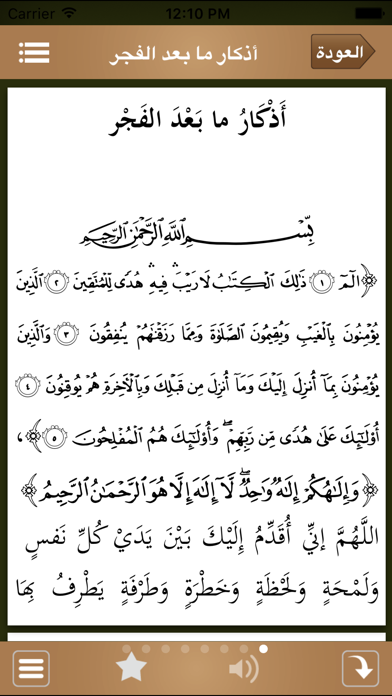 Carrier 12:10 PM
أذكار ما بعد الفجر
العودة
أَذْكَارُ ما بَعْدَ الفَجْر
بِسْمِ اللَّهِ الرَّحْمَٰنِ الرَّحِيمِ
﴿الٓمٓ ۝١ ذَٰلِكَ الْكِتَابُ لَا رَيْبَ ۛ فِيهِ ۛ هُدًى لِّلْمُتَّقِينَ ۝٢ الَّذِينَ
يُؤْمِنُونَ بِالْغَيْبِ وَيُقِيمُونَ الصَّلَاةَ وَمِمَّا رَزَقْنَاهُمْ يُنفِقُونَ ۝٣ وَالَّذِينَ
يُؤْمِنُونَ بِمَا أُنزِلَ إِلَيْكَ وَمَا أُنزِلَ مِن قَبْلِكَ وَبِالْآخِرَةِ هُمْ يُوقِنُونَ ۝٤
أُولَٰئِكَ عَلَىٰ هُدًى مِّن رَّبِّهِمْ ۖ وَأُولَٰئِكَ هُمُ الْمُفْلِحُونَ ۝٥﴾،
﴿وَإِلَٰهُكُمْ إِلَٰهٌ وَاحِدٌ ۖ لَّا إِلَٰهَ إِلَّا هُوَ الرَّحْمَٰنُ الرَّحِيمُ﴾
اللَّهُمَّ إِنِّي أُقَدِّمُ إِلَيْكَ بَيْنَ يَدَيْ كُلِّ نَفَسٍ
وَلَمْحَةٍ وَلَحْظَةٍ وَخَطْرَةٍ وَطَرْفَةٍ يَطْرِفُ بِهَا